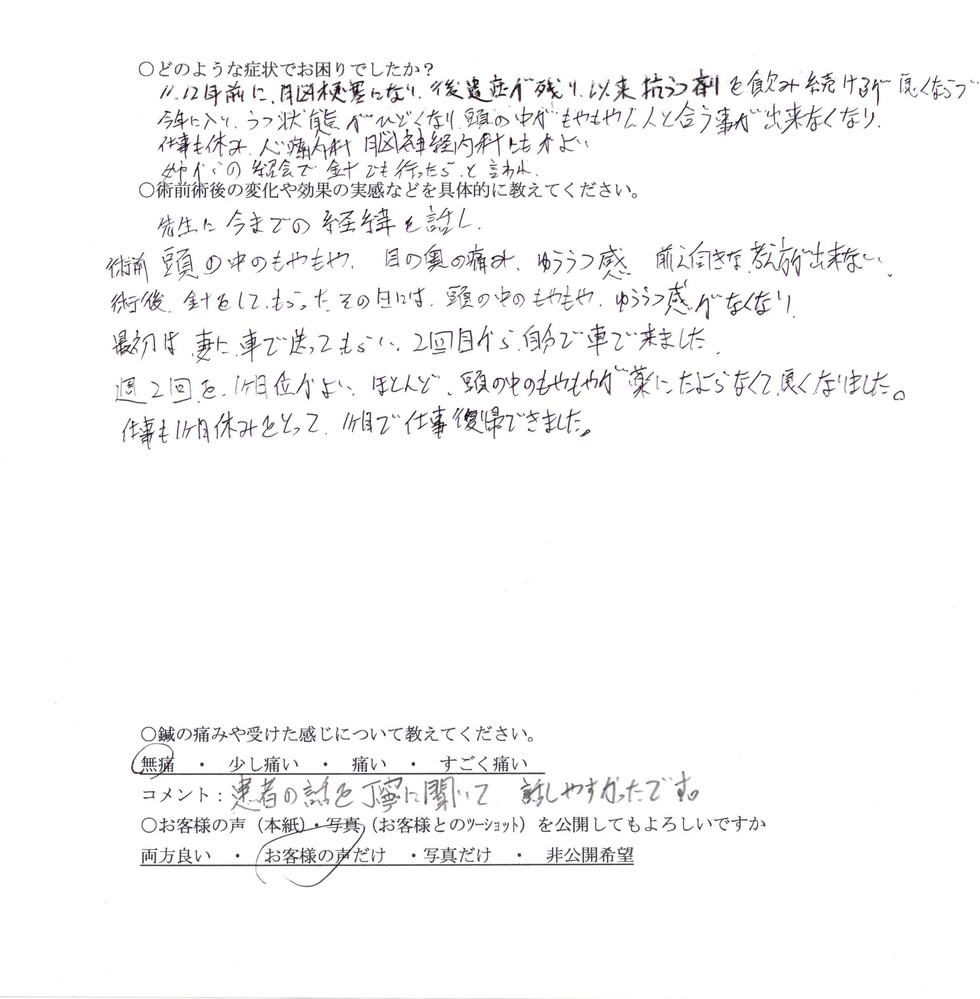 ○どのような症状でお困りでしたか？
11.12年前に、脳梗塞になり、後遺症が残り、以来抗うつ剤を飲み続けるが良くならず
今年に入り、うつ状態がひどくなり、頭の中がもやもやし人と合う事が出来なくなり、
仕事も休み、心療内科、脳神経内科にもかよい
姉からの紹会で針でも行ったらと言われ、
○術前術後の変化や効果の実感などを具体的に教えてください。
先生に今までの経緯を話し、
術前 頭の中のもやもや、目の奥の痛み、ゆううつ感 前え向きな考え方が出来ない、
術後、針をしてもらったその日には、頭の中のもやもや、ゆううつ感がなくなり、
最初は妻に車で送ってもらい、2回目から自分で車で来ました、
週2回を、1ヶ月位かよい、ほとんど、頭の中のもやもやが薬にたよらなくて良くなりました。
仕事も1ヶ月休みをとって、1ヶ月で仕事復帰できました。
○鍼の痛みや受けた感じについて教えてください。
無痛 ・ 少し痛い ・ 痛い ・ すごく痛い
コメント：患者の話を丁寧に聞いて 話しやすかったです。
○お客様の声（本紙）・写真（お客様とのﾂｰｼｮｯﾄ）を公開してもよろしいですか
両方良い ・ お客様の声だけ ・写真だけ ・ 非公開希望